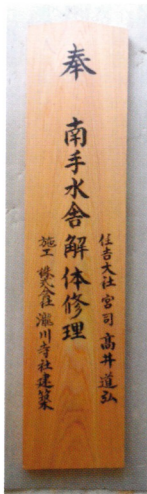 奉 南手水舎解体修理
住吉大社 宮司 髙井道弘
施工 株式会社 瀧川寺社建築